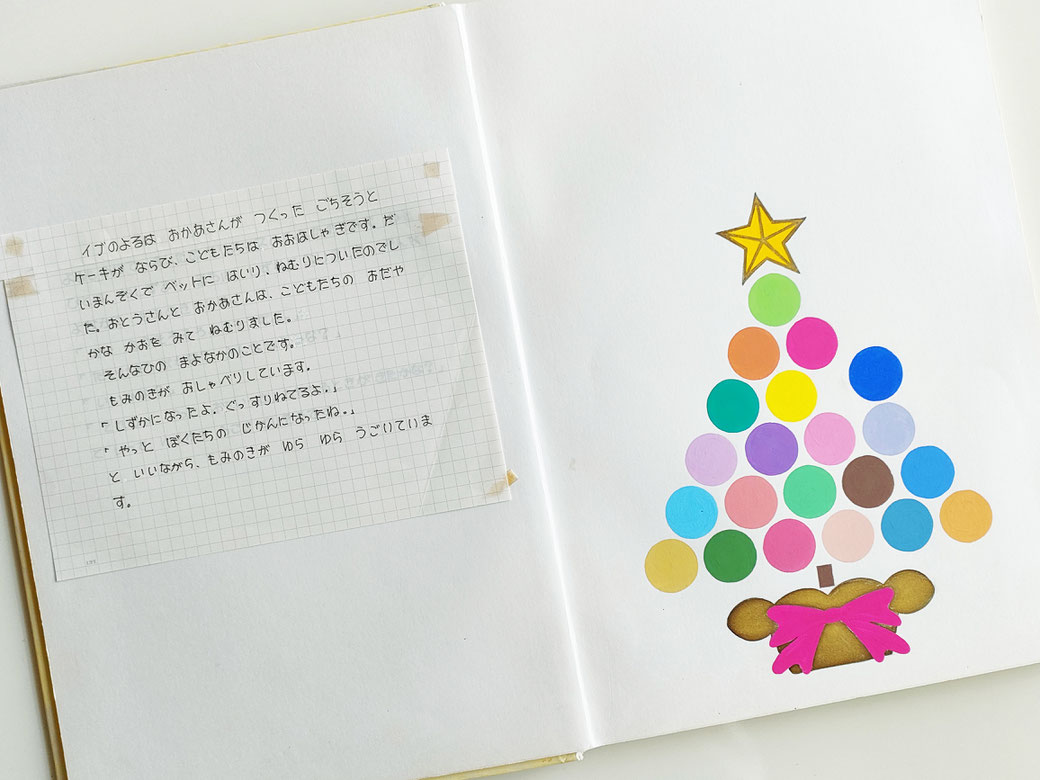 イブのよるは おかあさんが つくった ごちそうと
ケーキが ならび、こどもたちは おおはしゃぎです。だ
いまんぞくで ベットに はいり、ねむりについたのでし
た。おとうさんと おかあさんは、こどもたちの おだや
かな かおを みて ねむりました。
そんなひの まよなかのことです。
もみのきが おしゃべりしています。
「しずかになったよ。ぐっすりねてるよ。」
「やっと ぼくたちの じかんになったね。」
と いいながら、もみのきが ゆら ゆら うごいていま
す。